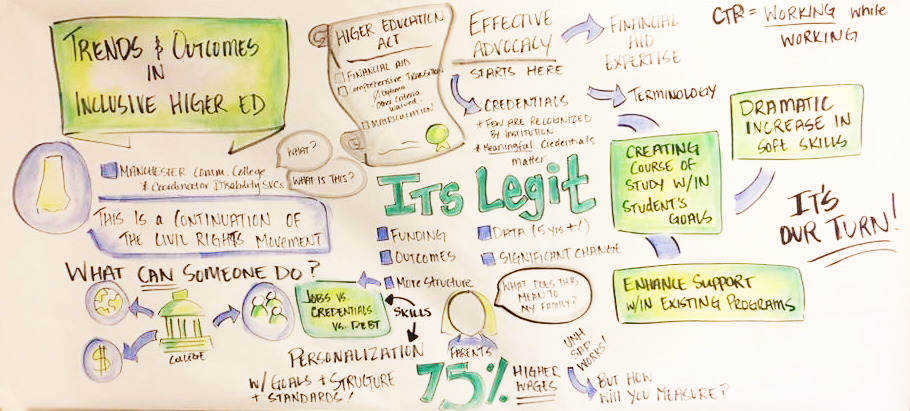 TRENDS & OUTCOMES
IN
INCLUSIVE HIGER ED
HIGER EDUCATION
ACT
FINANCIAL AID
Comprehensive Transition
Diploma
Other Criteria
waived
MATRICULATION
EFFECTIVE
ADVOCACY
STARTS HERE
FINANCIAL
AID
EXPERTISE
CTP = WORKING while
WORKING
CREDENTIALS
+ FEW ARE RECOGNIZED
BY INSTITUTION
* Meaningful Credentials
matter
TERMINOLOGY
DRAMATIC
INCREASE IN
SOFT SKILLS
CREATING
COURSE OF
STUDY W/IN
STUDENT'S
GOALS
IT'S
OUR TURN!
ENHANCE SUPPORT
W/IN EXISTING PROGRAMS
WHAT?
WHAT IS THIS?
MANCHESTER COMM. COLLEGE
& Coordinator Disability SVCS
THIS IS A CONTINUATION OF
THE CIVIL RIGHTS MOVEMENT
ITS Legit
FUNDING
OUTCOMES
More Structure
DATA (5 yrs +/)
SIGNIFICANT CHANGE
WHAT CAN SOMEONE DO?
COLLEGE
$
JOBS VS.
CREDENTIALS
VS. DEBT
SKILLS
PERSONALIZATION
W/ GOALS + STRUCTURE
+ STANDARDS!
WHAT DOES THIS
MEAN TO
MY FAMILY?
PARENTS
75% HIGHER
WAGES
UNH
SAID
WORKS!
BUT HOW
WILL YOU MEASURE?